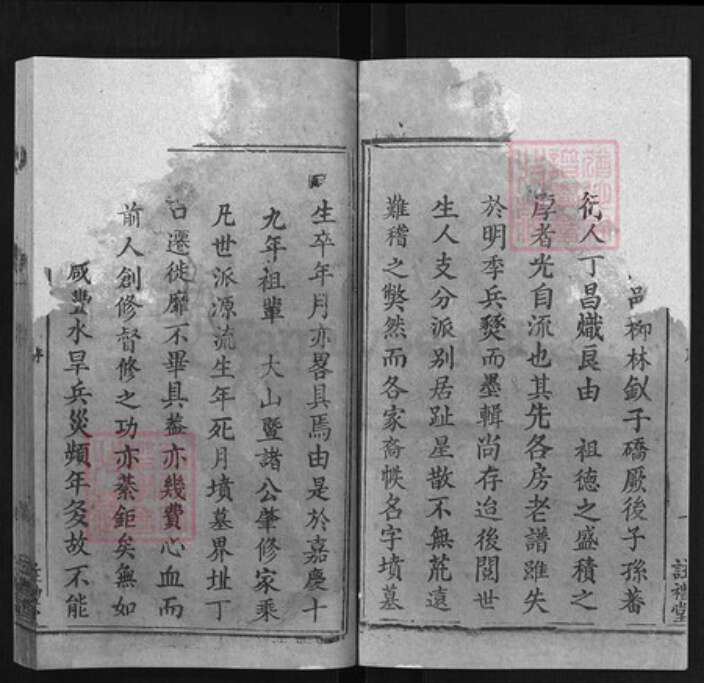 邑柳林鈥子礄厥後子孫蕃
衍人丁昌熾良由 祖德之盛積之
厚者光自流也其先各房老譜雖失
於明季兵燹而墨輯尚存迨後閱世
生人支分派別居趾星散不無荒遠
難稽之弊然而各家裔帙名字墳墓
生卒年月亦畧具焉由是於嘉慶十
九年祖輩 大山暨諸公肇修家乘
凡世派源流生年死月墳墓界址丁
口遷徙靡不畢具葢亦幾費心血而
前人創修督修之功亦綦鉅矣無如
咸豐水旱兵災頻年矣故不能
註禮堂
序